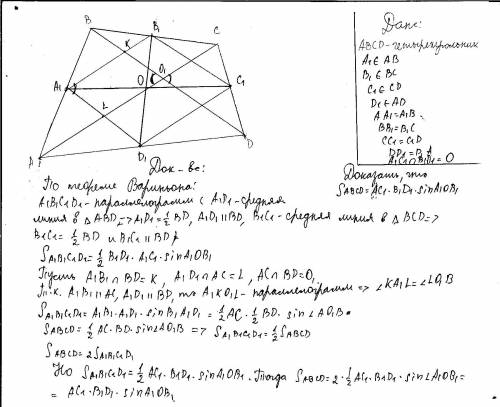 B
B1
C
K
O1
A1
O
C1
L
A
D1
D
Дано:
ABCD - четырехугольник
A1 ∈ AB
B1 ∈ BC
C1 ∈ CD
D1 ∈ AD
AA1 = A1B
BB1 = B1C
CC1 = C1D
DD1 = D1A
A1C1 ∩ B1D1 = O
Док-во:
Доказать, что
SABCD = AC1 · B1D1 · sin A1OB1
По теореме Вариньона:
A1B1C1D1 - параллелограмм с A1D1 - средняя
линия в △ABD => A1D1 = 1/2 BD, A1D1 || BD, B1C1 - средняя линия в △BCD =>
B1C1 = 1/2 BD и B1C1 || BD
SA1B1C1D1 = 1/2 B1D1 · A1C1 · sin A1OB1
Пусть A1B1 ∩ BD = K, A1D1 ∩ AC = L, AC ∩ BD = O1
Т.к. A1B1 || AC, A1D1 || BD, то A1KO1L - параллелограмм => ∠KA1L = ∠LO1B
SA1B1C1D1 = A1B1 · A1D1 · sin B1A1D1 = 1/2 AC · 1/2 BD · sin ∠AO1B
SABCD = 1/2 AC · BD · sin ∠AO1B => SA1B1C1D1 = 1/2 SABCD
SABCD = 2SA1B1C1D1
Но SA1B1C1D1 = 1/2 AC1 · B1D1 · sin A1OB1. Тогда SABCD = 2 · 1/2 AC1 · B1D1 · sin ∠A1OB1 =
= AC1 · B1D1 · sin A1OB1